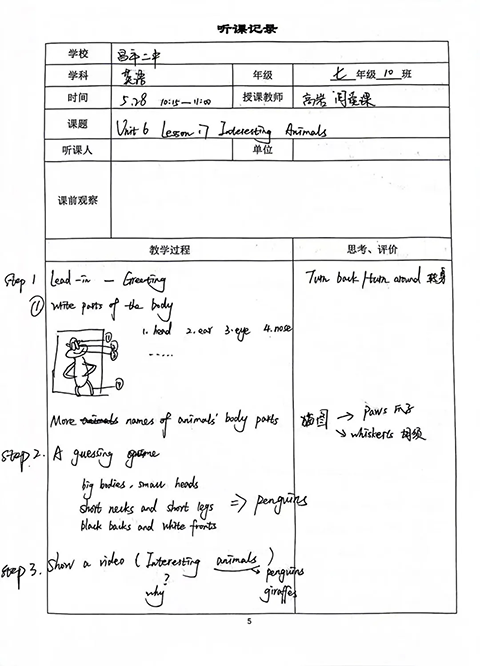 听课记录
学校 昌平二中
学科 英语 年级 七 年级 10 班
时间 5.28 10:15—11:00 授课教师
课题 Unit 6 Lesson 17 Interesting Animals
听课人 单位
课前观察
教学过程 思考、评价
Step 1 Lead-in — Greeting Turn back/turn around 转身
① write parts of the body
1. head 2. ear 3. eye 4. nose
.....
① ② ③ ④
More names of animals' body parts 猫图 → paws 爪子
↘ whiskers 胡须
Step 2. A guessing game
big bodies, small heads
short necks and short legs ⇒ penguins
black backs and white fronts
Step 3. Show a video (Interesting animals)
? penguins
why giraffes
5